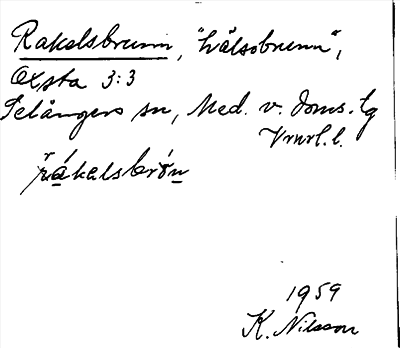 Rakelsbrunn, "hälsobrunn",
Oxsta 3:3
Selångers sn, Med. v. doms. tg
Vrnrl. l.
rákelsbrón
1959
K. Nilsson